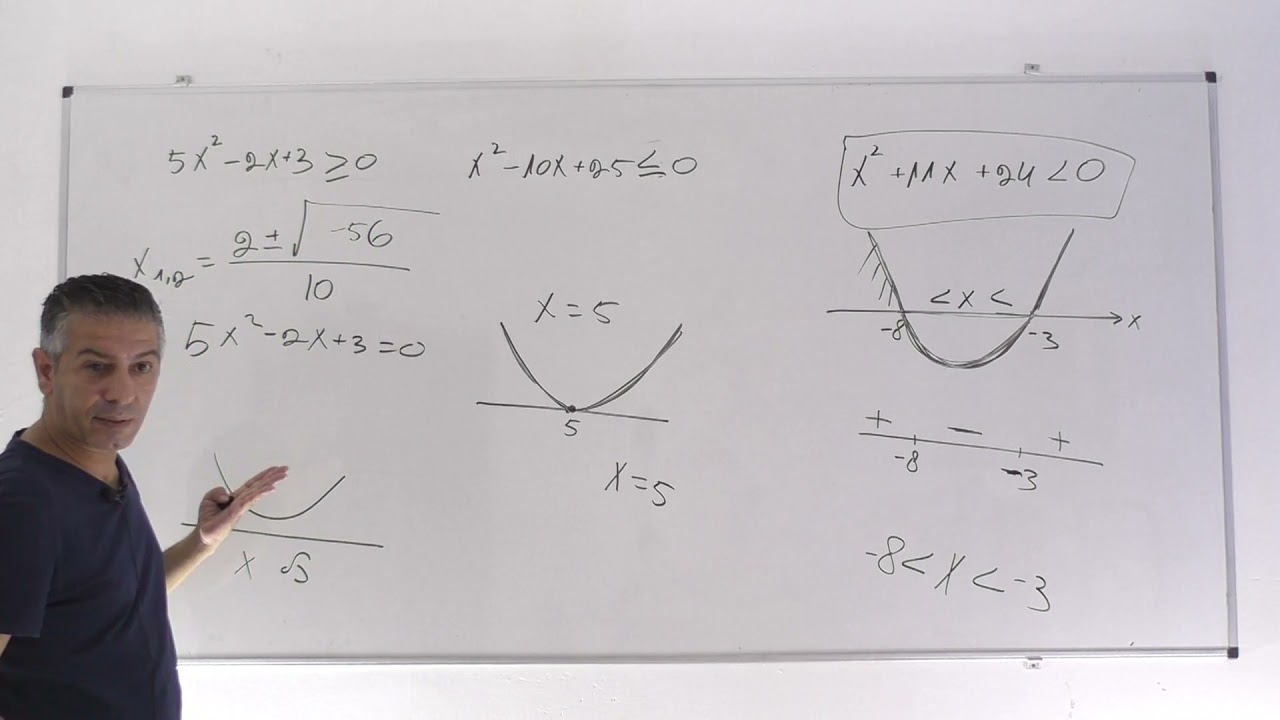 5x² - 2x + 3 ≥ 0
x₁,₂ = (2 ± √-56) / 10
5x² - 2x + 3 = 0
כל x
x² - 10x + 25 ≤ 0
x = 5
5
x = 5
x² + 11x + 24 < 0
< x <
-8 -3 x
+ - +
-8 -3
-8 < x < -3